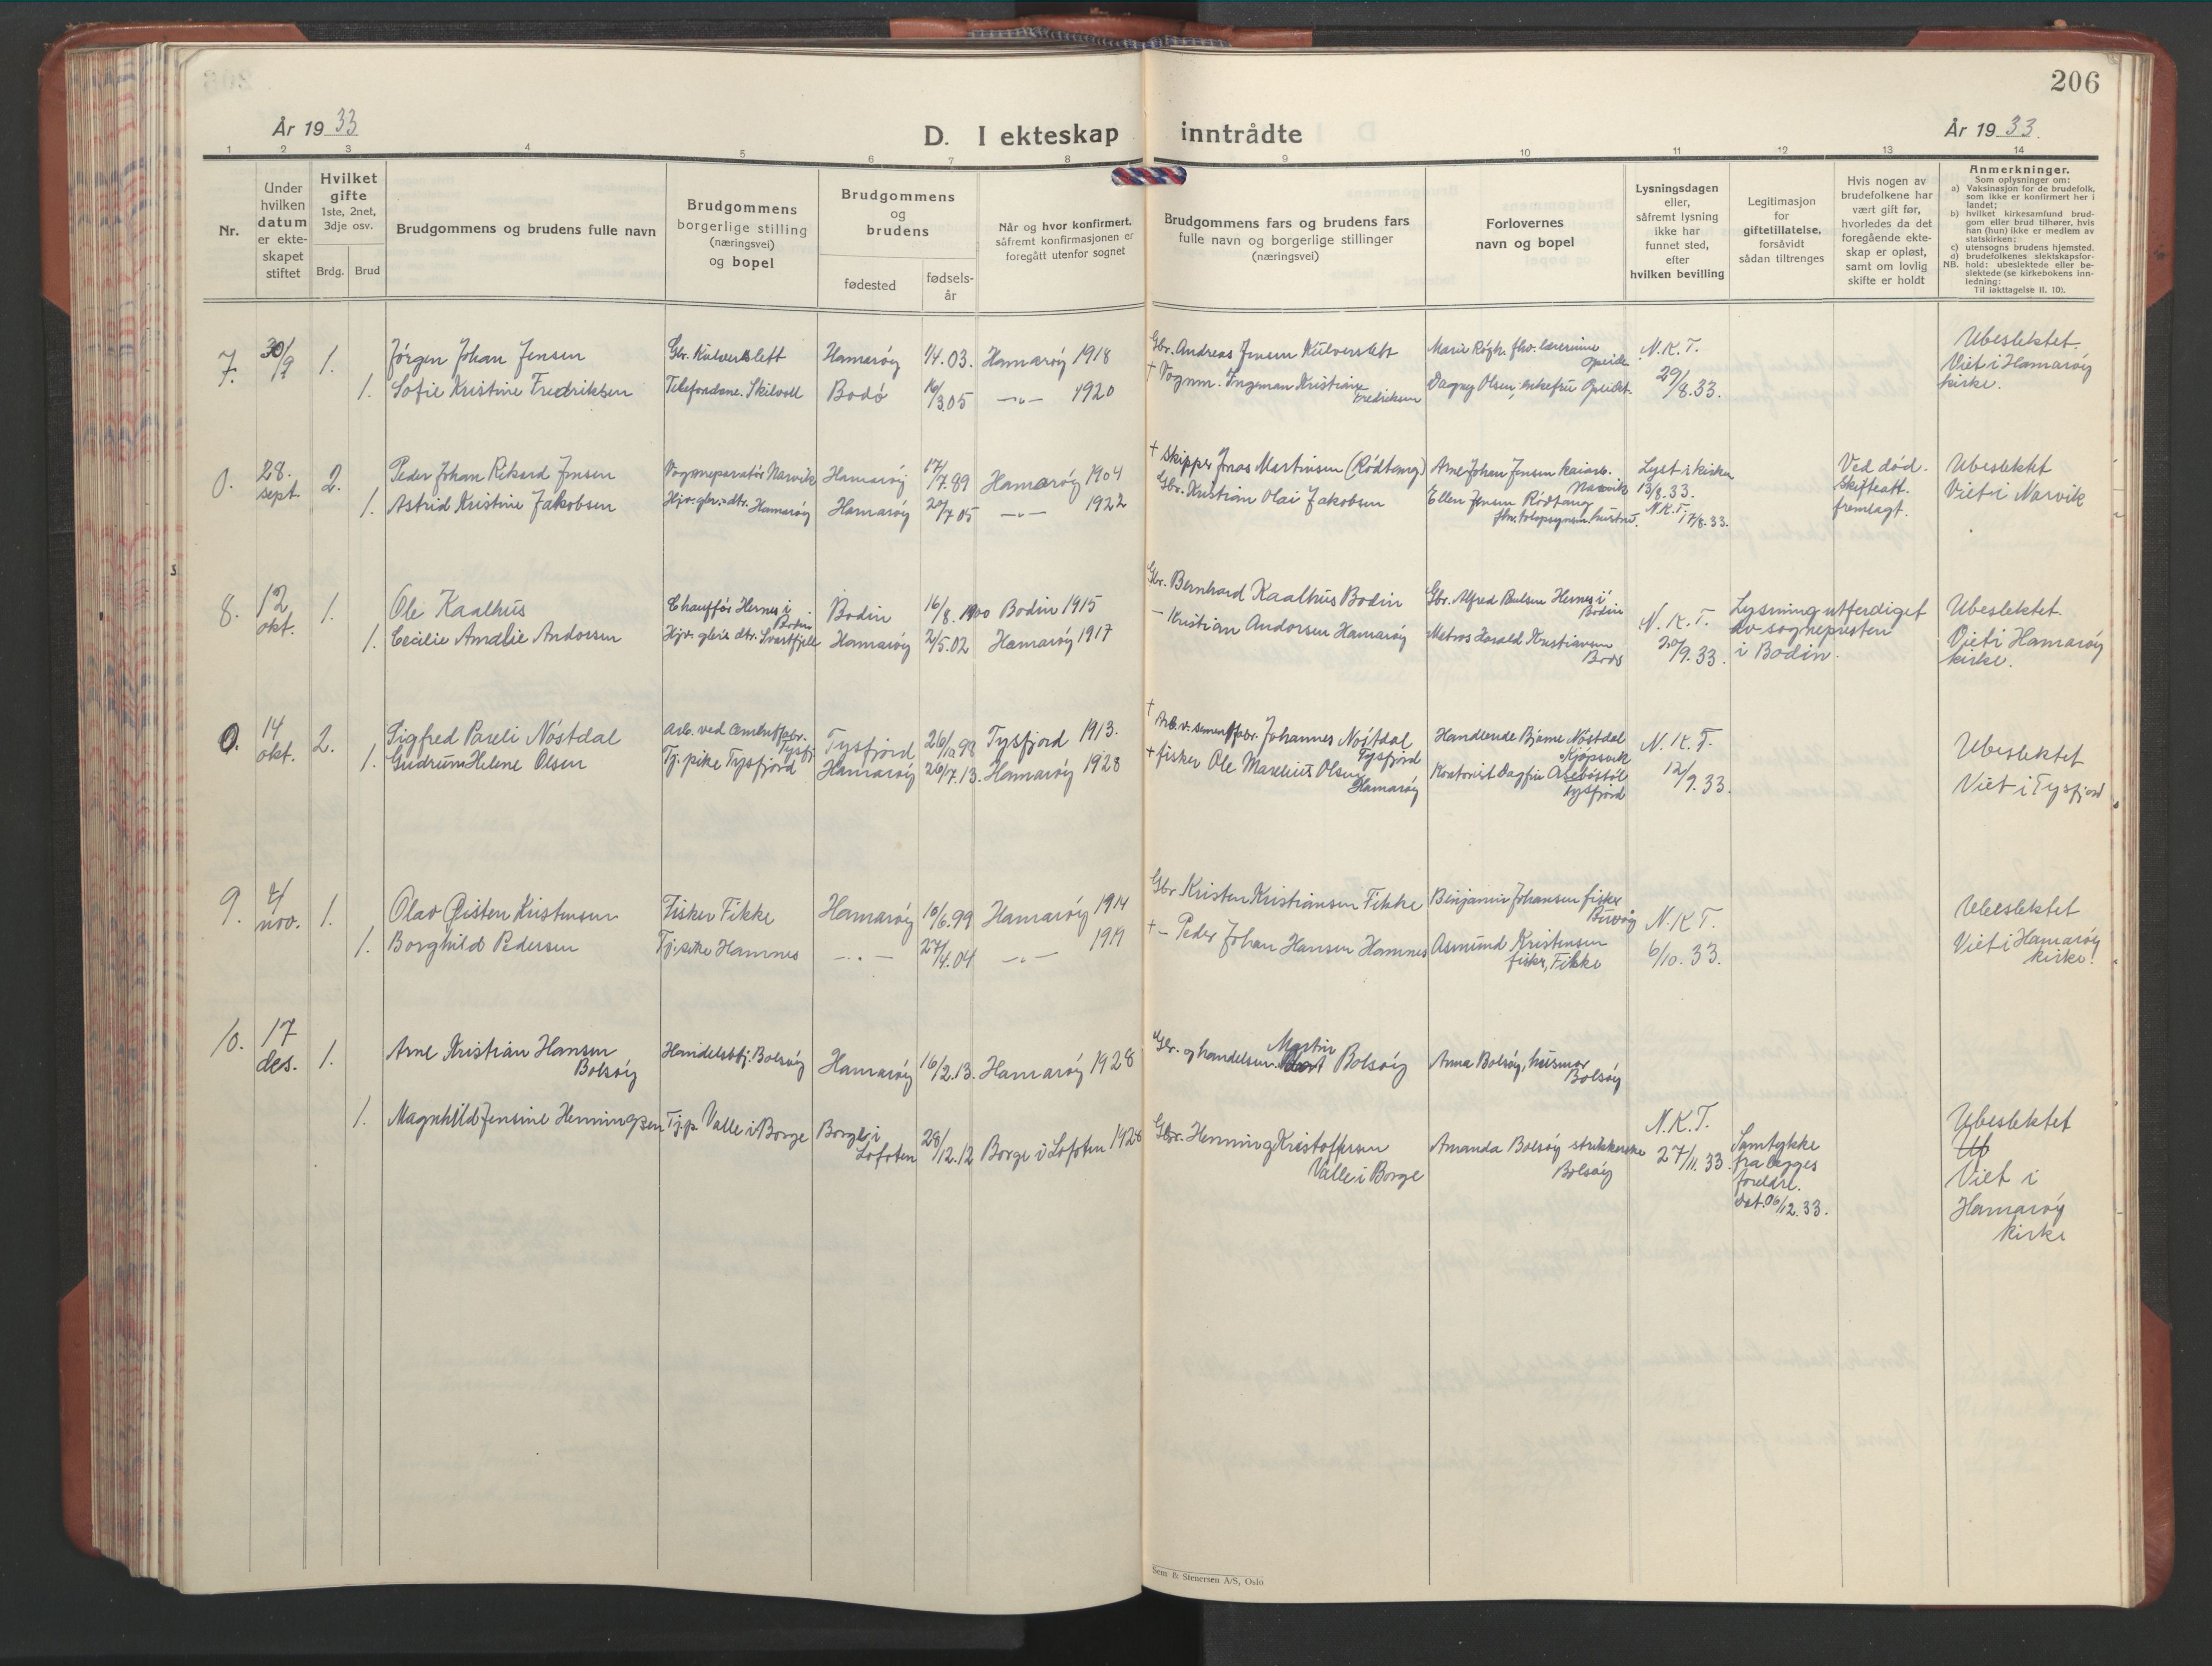 206
År 1933
D. I ekteskap inntrådte
År 1933.
1 2 3 4 5 6 7 8 9 10 11 12 13 14
Nr.
Under hvilken datum er ekteskapet stiftet
Hvilket gifte
1ste, 2net, 3dje osv.
Brdg. Brud
Brudgommens og brudens fulle navn
Brudgommens borgerlige stilling (næringsvei) og bopel
Brudgommens og brudens
fødested
fødselsår
Når og hvor konfirmert, såfremt konfirmasjonen er foregått utenfor sognet
Brudgommens fars og brudens fars fulle navn og borgerlige stillinger (næringsvei)
Forlovernes navn og bopel
Lysningsdagen eller, såfremt lysning ikke har funnet sted, efter hvilken bevilling
Legitimasjon for giftetillatelse, forsåvidt sådan tiltrenges
Hvis nogen av brudefolkene har vært gift før, hvorledes da det foregående ekteskap er opløst, samt om lovlig skifte er holdt
Anmerkninger.
Som oplysninger om:
a) Vaksinasjon for de brudefolk, som ikke er konfirmert her i landet;
b) hvilket kirkesamfund brudgom eller brud tilhører, hvis han (hun) ikke er medlem av statskirken;
c) utensogns brudens hjemsted.
d) brudefolkenes slektskapsforhold: ubeslektede eller beslektede (se kirkebokens innledning:
NB. Til iakttagelse II. 10).
7. 30/9 1. Jørgen Johan Jensen Gbr. Kulverslett Hamarøy 1/4.03. Hamarøy 1918 Gbr. Andreas Jensen Kulverslett N.K.T. Ubeslektet.
1. Sofie Kristine Fredriksen Bodø 3.05 —"— 1920 † Vognm. Ingeman Kristian Fredriksen Dagny Olsen, enkefru Opeidet. 29/8.33. Viet i Hamarøy kirke.
0. 28. sept. 2. Peder Johan Rikard Jensen Vognreparatør Narvik Hamarøy 17/7.89 Hamarøy 1904 † Skipper Jonas Martinsen (Rødtang) Arne Johan Jensen kaiarb. Narvik Lyst i kirken 13/8.33. Ved død. Skifteatt. fremlagt. Ubeslektet
1. Astrid Kristine Jakobsen Hjv. gbr.-dtr. Hamarøy Hamarøy 27/7 05 —"— 1922 Gbr. Kristian Olai Jakobsen Ellen Jensen Rødtang N.K.T. 17/8.33. Viet i Narvik
8. 12 okt. 1. Ole Kaalhus Chauffør Hernes i Bodin Bodin 16/8.1900 Bodin 1915 Gbr. Bernhard Kaalhus Bodin Gbr. Alfred Paulsen Hernes i Bodin N.K.T. Lysning utferdiget av sognepresten i Bodin. Ubeslektet.
1. Cecilie Amalie Andorsen Hjv. gbr's dtr. Svartfjell Hamarøy 2/5.02 Hamarøy 1917 — Kristian Andorsen Hamarøy Matros Harald Kristiansen Bodø 20/9.33. Viet i Hamarøy kirke.
0. 14 okt. 2. Sigfred Pareli Nøstdal Arb. ved cementfabr. Tysfj. Tysfjord 26/10 98 Tysfjord 1913. † Arb. v. sementfabr. Johannes Nøstdal Tysfjord Handlende Bjarne Nøstdal Kjøpsvik N.K.T. Ubeslektet
1. Gudrun Helene Olsen Tj. pike Tysfjord Hamarøy 26/7.13. Hamarøy 1928 † fisker Ole Marelius Olsen Hamarøy Kontorist Dagfin Tysfjord 12/9.33. Viet i Tysfjord
9. 4/ nov. 1. Olav Øisten Kristensen Fisker Fikke Hamarøy 10/6.99 Hamarøy 1914 Gbr. Kristen Kristiansen Fikke Benjamin Johansen fisker Buvåg N.K.T. Ubeslektet
1. Borghild Pedersen Tj. pike Hamnes —"— 27/4.04 —"— 1919 † — Peder Johan Hansen Hamnes Asmund Kristensen fisker, Fikke 6/10.33. Viet i Hamarøy kirke.
10. 17 des. 1. Arne Kristian Hansen Bolsøy Handelsbtj. Bolsøy Hamarøy 16/2.13. Hamarøy 1928 Gbr. og handelsm. Martin Bolsøy Anna Bolsøy, husmor Bolsøy
1. Magnhild Jensine Henningsen Tj.p. Valle i Borge Borge i Lofoten 28/12.12 Borge i Lofoten 1928 Gbr. Henning Kristoffersen Valle i Borge Amanda Bolsøy strikkerske Bolsøy N.K.T. 27/11.33 Samtykke fra begges foreldre. dat. 6/12.33. Ubeslektet
Ub
Viet i Hamarøy kirke
Sem & Stenersen A/S, Oslo